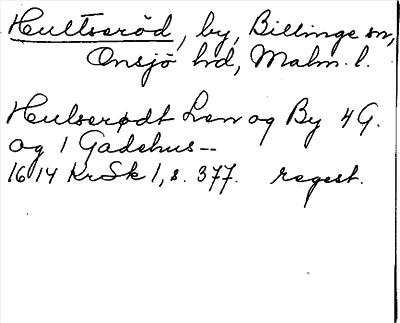 Hultseröd, by, Billinge sn,
Onsjö hd, Malm. l.
Hulserødt Len og By 4 G.
og 1 Gadehus--
1614 KrSk 1, s. 377. regest.